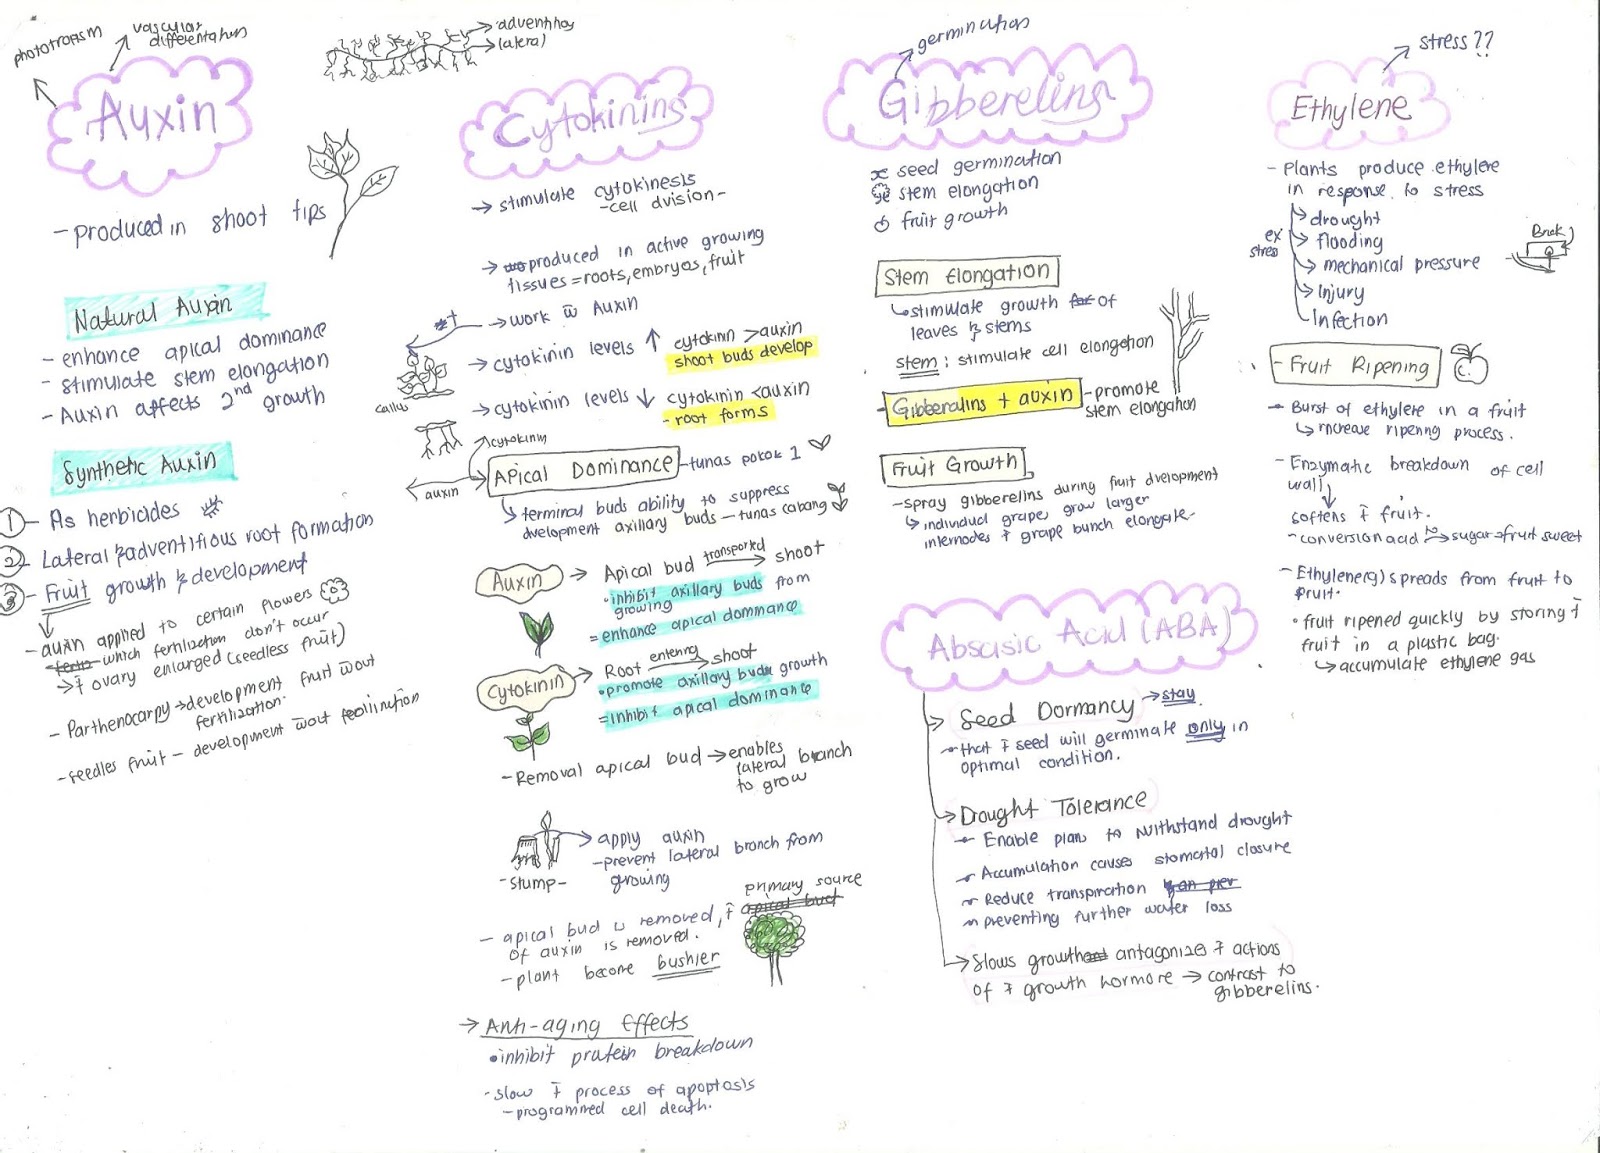 phototropism
vascular
differentiation
Auxin
- produced in shoot tips
Natural Auxin
- enhance apical dominance
- stimulate stem elongation
- Auxin affects 2nd growth
Synthetic Auxin
1 - As herbicides
2 - Lateral & adventitious root formation
3 - Fruit growth & development
- auxin applied to certain flowers
which fertilization don't occur
→ ovary enlarged (seedless fruit)
- Parthenocarpy → development fruit w̄out
fertilization.
- seedles fruit - development w̄out
adventitiou
lateral
Cytokinins
→ stimulate cytokinesis
- cell dvision -
→ produced in active growing
tissues = roots, embryos, fruit
→ work w̄ Auxin
callus
→ cytokinin levels ↑ cytokinn > auxin
shoot buds develop
→ cytokinin levels ↓ cytokinin < auxin
- root forms
cytokinin
auxin
Apical Dominance - tunas pokok 1
↳ terminal buds ability to suppress
dvelopment axillary buds - tunas cabang
Auxin → Apical bud transported → shoot
• inhibit axillary buds from
growing
= enhance apical dommance
Cytokinin → Root entering → shoot
• promote axillary buds growth
= inhibit apical dominance
- Removal apical bud → enables
lateral branch
to grow
- stump -
apply auxin
- prevent lateral branch from
growing
- apical bud is removed, t̄ primary source
apical bud
of auxin is removed.
- plant become bushier
→ Anti-aging Effects
• inhibit protein breakdown
- slow t̄ process of apoptosis
- programmed cell death.
germination
Gibberelins
seed germination
stem elongation
fruit growth
Stem Elongation
↳ stimulate growth for of
leaves & stems
stem : stimulate cell elongation
- Gibberalins + auxin - promote
stem elongation
Fruit Growth
- spray gibberelins during fruit dvelopment
↳ individual grapes grow larger
internodes t̄ grape bunch elongate.
Absasic Acid (ABA)
→ Seed Dormancy → stay
that t̄ seed will germinate only in
optimal condition.
→ Drought Tolerance
Enable plan to withstand drought
Accumulation causes stomatal closure
Reduce transpiration
preventing further water loss
→ Slows growth antagonizes t̄ actions
of t̄ growth hormone → contrast to
gibberelins.
stress??
Ethylene
- Plants produce ethylene
in response to stress
ex
stress
drought
flooding
mechanical pressure
Injury
Infection
Brick
- Fruit Ripening
- Burst of ethylene in a fruit
↳ increase ripening process.
- Enzymatic breakdown of cell
wall
↓
softens t̄ fruit.
- conversion acid to → sugar → fruit sweet
- Ethylene(g) spreads from fruit to
fruit.
• fruit ripened quickly by storing t̄
fruit in a plastic bag.
↳ accumulate ethylene gas